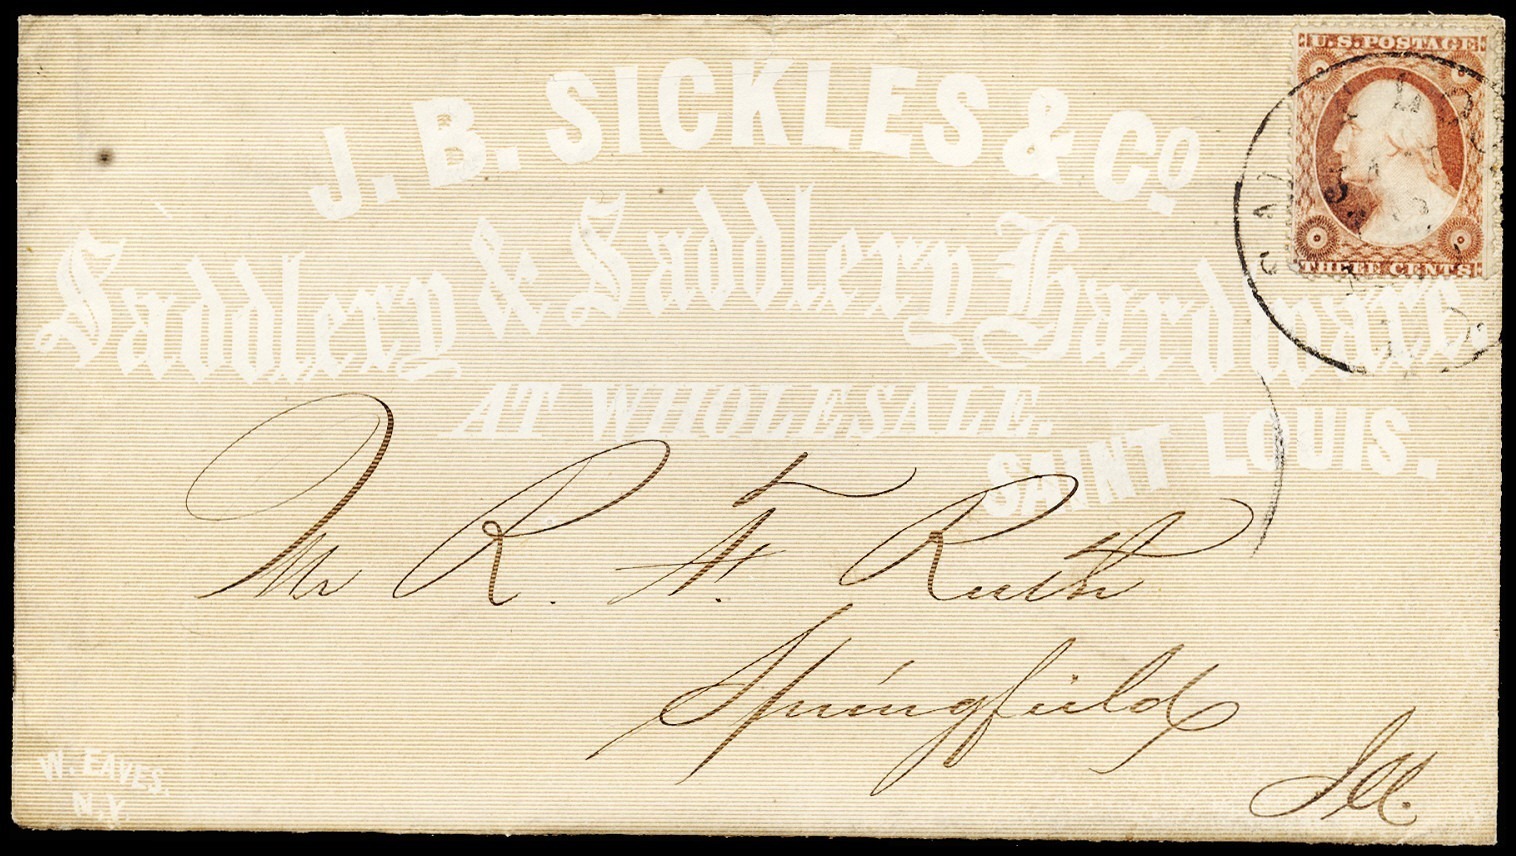 J. B. SICKLES & Co
Saddlery & Saddlery Hardware.
AT WHOLESALE.
SAINT LOUIS.
U.S. POSTAGE
THREE CENTS
Mr R. F. Ruth
Springfield
Ill.
W. EAVES.
N.Y.